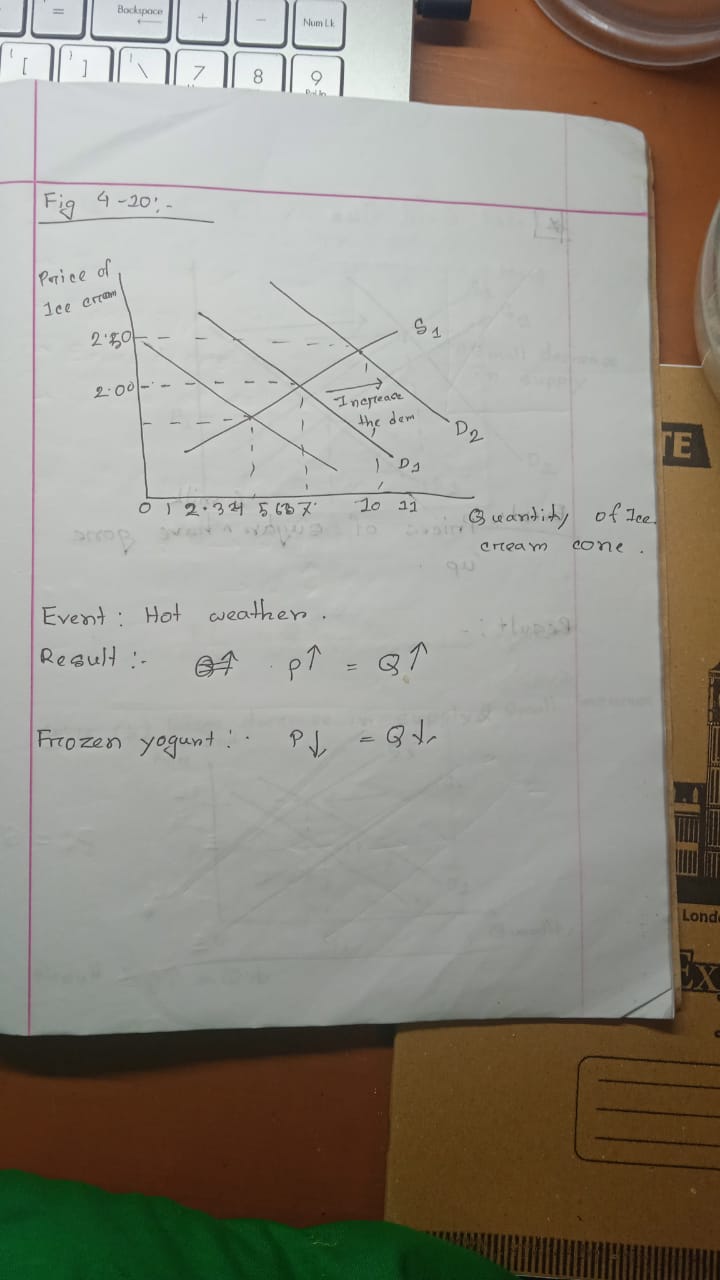 =
Backspace
+
-
Num Lk
[
]
\
7
8
9
Fig 4-10:-
Price of
Ice cream
2.50
2.00
S1
Increace
the dem
D2
D1
0 1 2 3 4 5 6 7 10 11
Quantity of Ice
cream cone.
Event: Hot weather.
Result :- P↑ = Q↑
Frozen yogurt :- P↓ = Q↓
TE
Lond
Ex